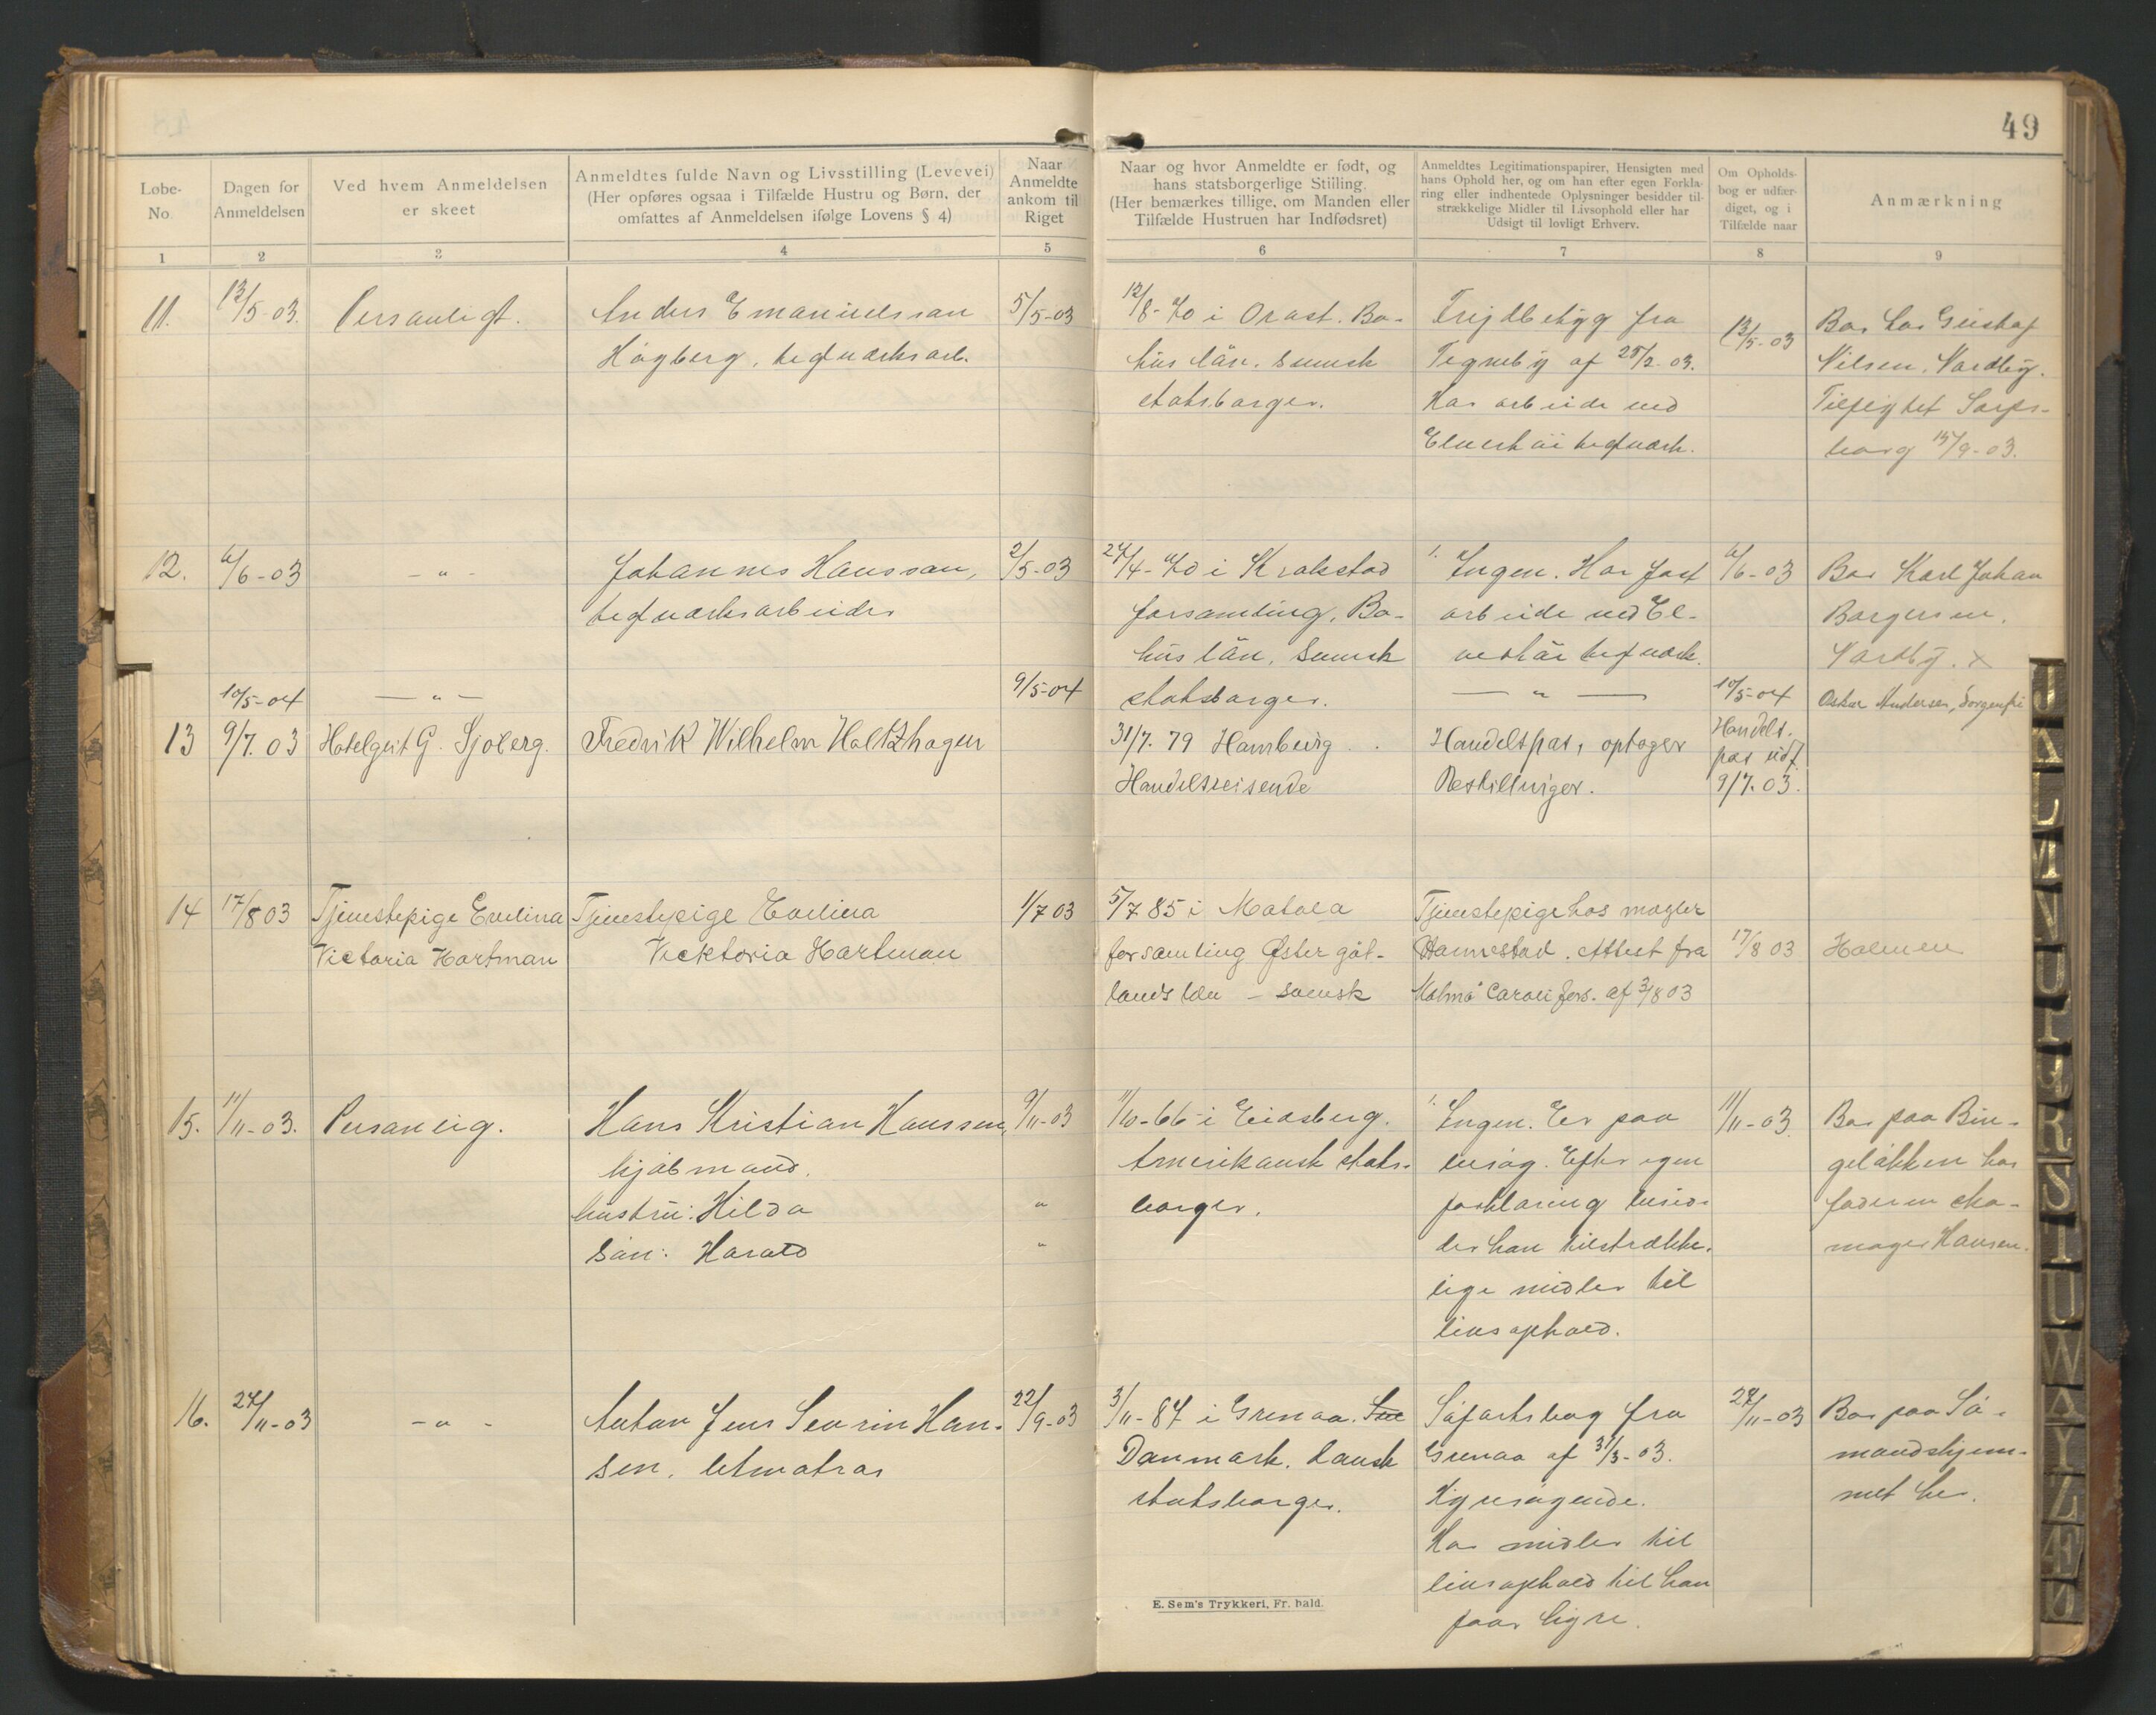 49
Løbe-
No
Dagen for
Anmeldelsen
Ved hvem Anmeldelsen
er skeet
Anmeldtes fulde Navn og Livsstilling (Levevei)
(Her opføres ogsaa i Tilfælde Hustru og Børn, der
omfattes af Anmeldelsen ifølge Lovens § 4)
Naar
Anmeldte
ankom til
Riget
Naar og hvor Anmeldte er født, og
hans statsborgerlige Stiiling.
(Her bemærkes tillige, om Manden eller
Tilfælde Hustruen har Indfødsret)
Anmeldtes Legitimationspapirer, Hensigten med
hans Ophold her, og om han efter egen Forkla-
ring eller indhentede Oplysninger besidder til-
strækkelige Midler til Livsophold eller har
Udsigt til lovligt Erhverv.
Om Opholds-
bog er udfær-
diget, og i
Tilfælde naar
Anmærkning
1 2 3 4 5 6 7 8 9
11.
13/5-03.
Personligt.
Anders Emanuelsson
Högberg, teglværksarb.
5/5-03
12/8-70 i Orost. Bo-
hus län. Svensk
statsborger.
Frejdbetyg fra
Tegneby af 25/2-03.
Har arbeide ved
Elveshöi teglværk.
13/5-03
Bor hos Gustaf
Nilsen, Nordby.
Tilflyttet Sarps-
borg 15/9-03.
12.
6/6-03
- " -
Johannes Hansson,
teglværksarbeider
2/5-03
24/4-70 i Krokstad
forsamling, Bo-
hus län, Svensk
statsborger.
1. Ingen. Har fast
arbeide ved El-
veshöi teglværk.
6/6-03
Bor Karl Johan
Borgersen,
Nordby. x
10/5-04
- " -
9/5-04
- " -
10/5-04
Oskar Andersen, Sorgenfri
13
9/7.03
Hotelgeit G. Sjöberg.
Fredrik Wilhelm Holtzhagen
31/7.79 Hamburg
Handelsreisende
Handelspas, optager
Bestillinger.
Handels-
pas udf.
9/7.03.
14
17/8 03
Tjenestepige Evelina
Victoria Hartman
Tjenestepige Evelina
Vicktoria Hartman
1/7 03
5/7 85 i Motala
forsamling Øster göt-
lands län - svensk
Tjenestepige hos mægler
Hannestad. Attest fra
Malmö Caroli fors. af 3/8 03
17/8 03
Holmen
15.
11/11-03.
Personlig.
Hans Kristian Hanssen,
kjøbmand.
hustru: Hilda
Søn: Harald
9/11-03
"
"
1/10-66 i Eidsberg.
Amerikansk stats-
borger.
1. Ingen. Er paa
besøg. Efter egen
forklaring besid-
der han tilstrække-
lige midler til
livsophold.
11/11-03.
Bor paa Bin-
geløkken hos
faderen sko-
mager Hansen.
16.
24/11-03
- " -
Anton Jens Severin Han-
sen, letmatros
22/9-03
3/11-87 i Grenaa.
Danmark. Dansk
statsborger.
Søfartsbog fra
Grenaa af 31/3-03.
Hyresøgende.
Har midler til
livsophold til han
faar hyre.
24/11-03
Bor paa Sø-
mandshjem-
met her.
E. Sem's Trykkeri, Fr. hald.
J
K
L
M
N
O
P
Q
R
S
T
U
W
X
Y
Z
Æ
Ø